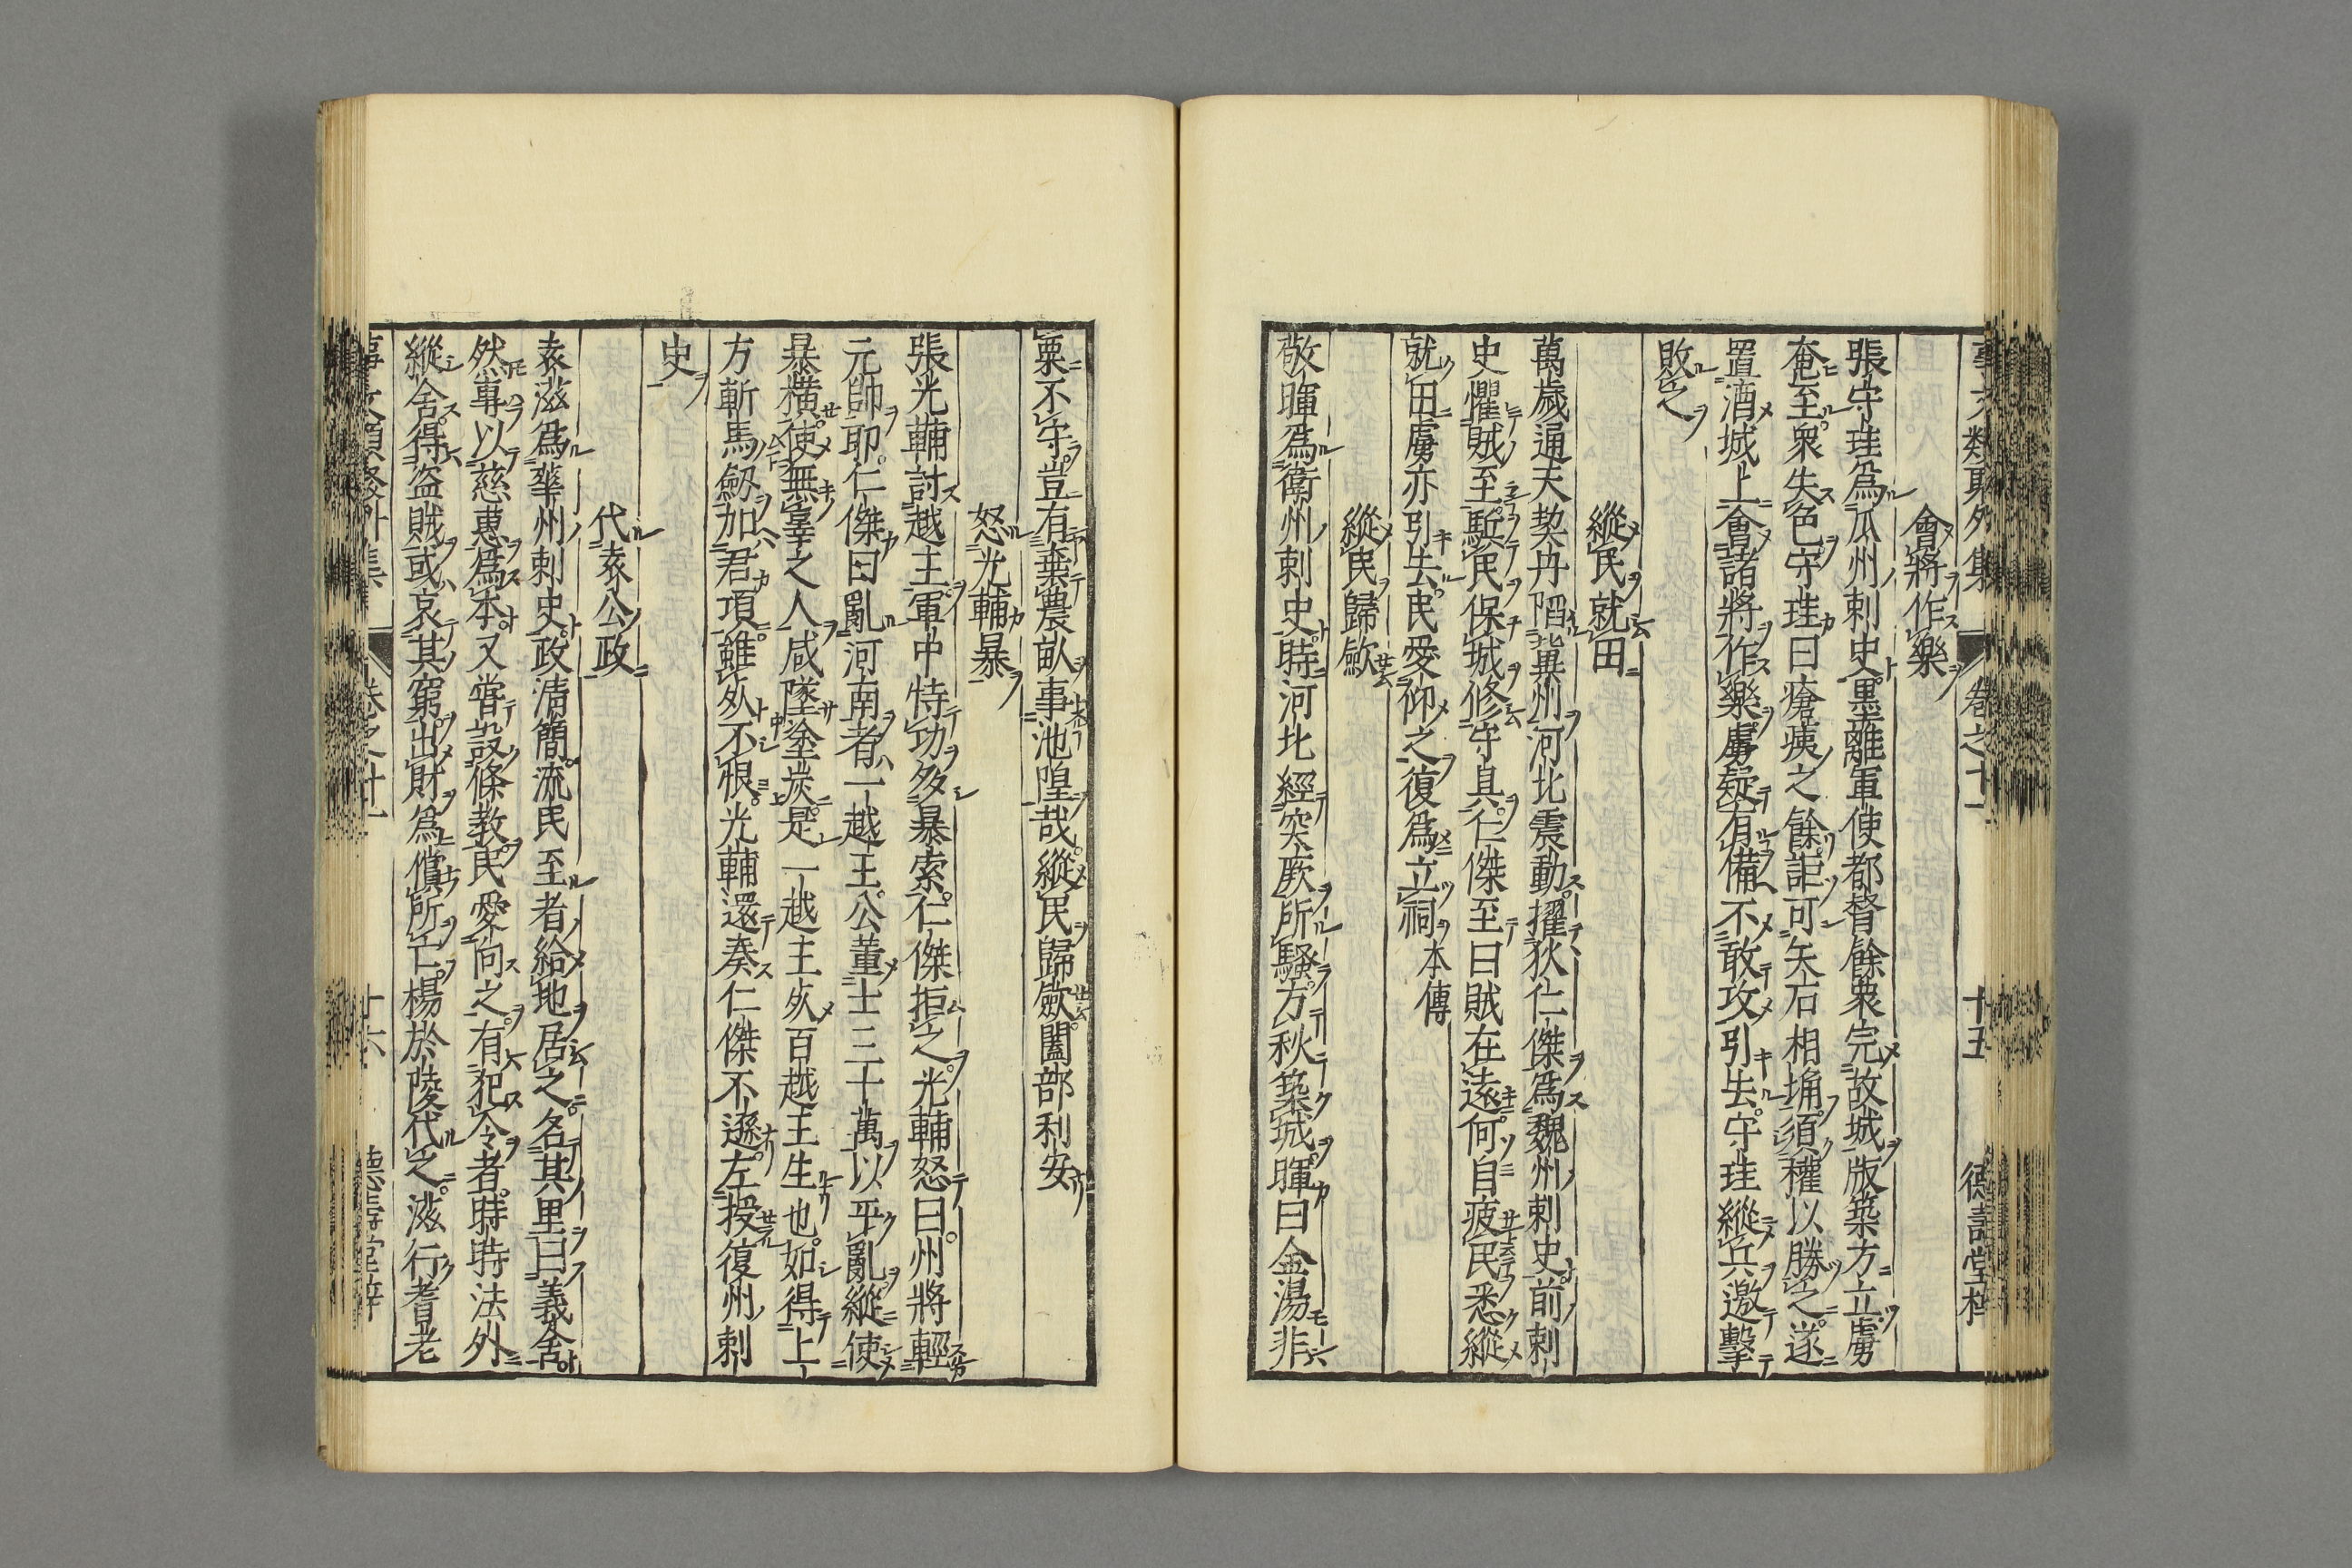 事文類聚外集 卷之十一 十五 德壽堂梓
會將作樂
張守珪爲瓜州刺史黒離軍使都督餘衆完故城版築方立虜
奄至衆失色守珪曰瘡痍之餘詎可矢石相埆須權以勝之遂
置酒城上會諸將作樂虜疑有備不敢攻引去守珪縱兵邀擊
敗之
縱民就田
萬歲通天契丹陷冀州河北震動擢狄仁傑爲魏州刺史前刺
史懼賊至驅民保城修守具仁傑至曰賊在遠何自疲民悉縱
就田虜亦引去民愛仰之復爲立祠 本傳
縱民歸斂
敬暉爲衛州刺史時河北經突厥所騷方秋築城暉曰金湯非
粟不守豈有棄農畝事池隍哉縱民歸斂闔部利安
怒光輔暴
張光輔討越王軍中恃功多暴索仁傑拒之光輔怒曰州將輕
元帥耶仁傑曰亂河南者一越王公董士三十萬以平亂縱使
暴橫使無辜之人咸墜塗炭是一越王死百越王生也如得上
方斬馬劔加君項雖死不恨光輔還奏仁傑不遜左授復州刺
史
代袁公政
袁滋爲華州刺史政清簡流民至者給地居之名其里曰義舍
然専以慈惠爲本又甞設條教民愛向之有犯令者時時法外
縱舍得盜賊或哀其窮出財爲償所亡楊於陵代之滋行耆老